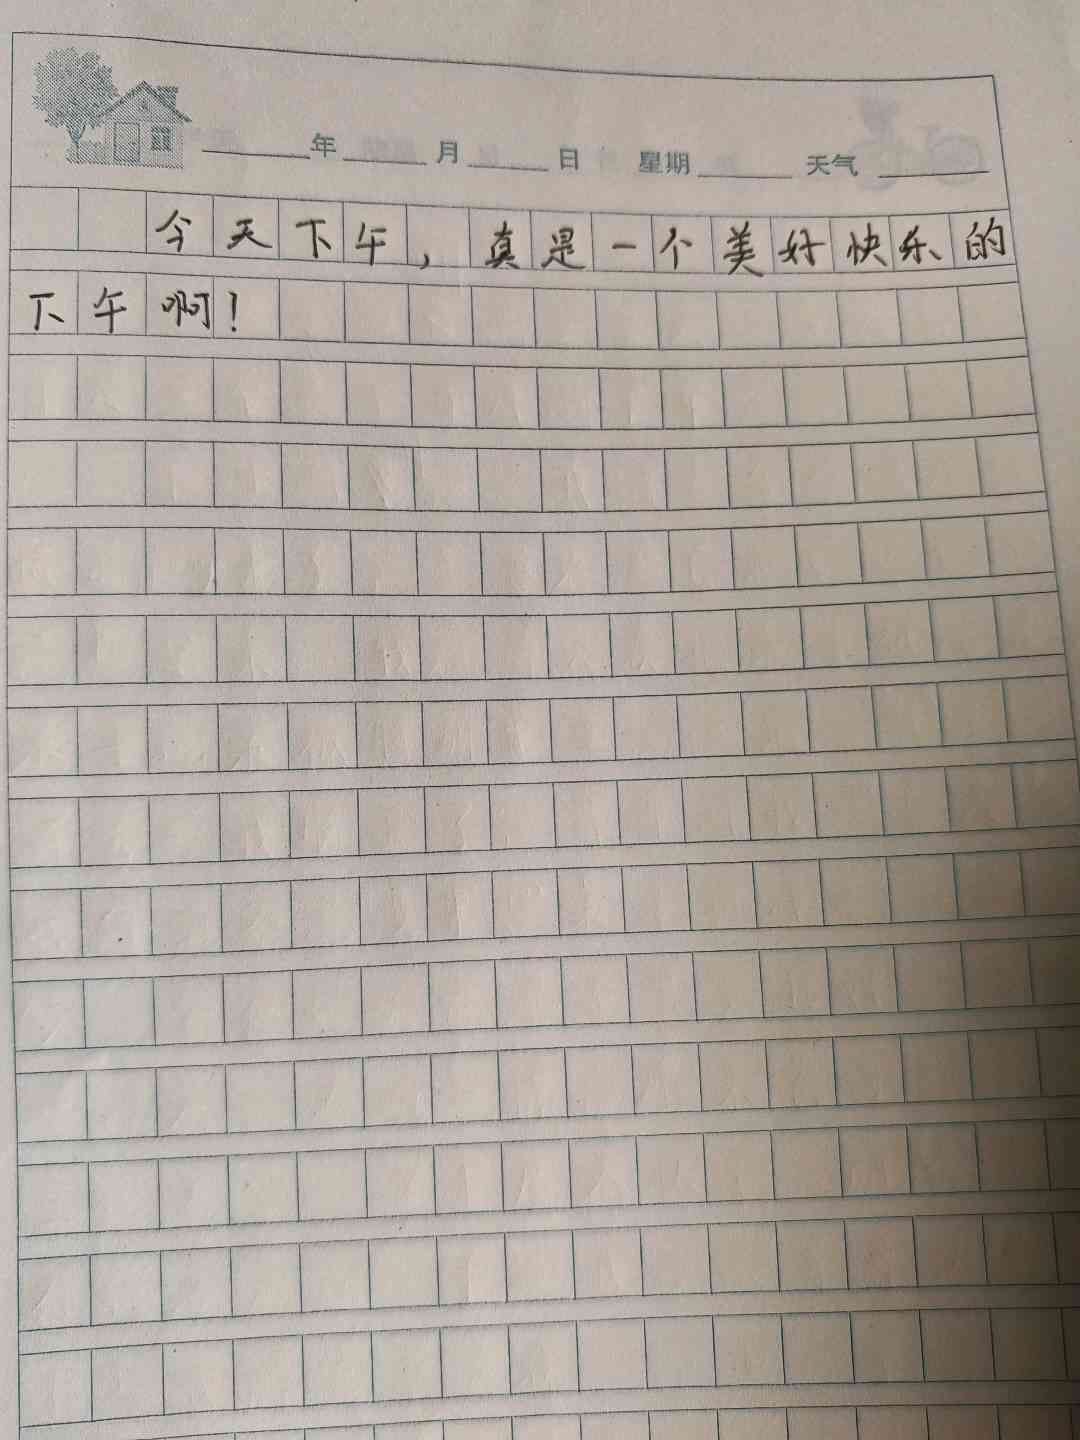 年 月 日 星期 天气
今天下午，真是一个美好快乐的
下午啊！